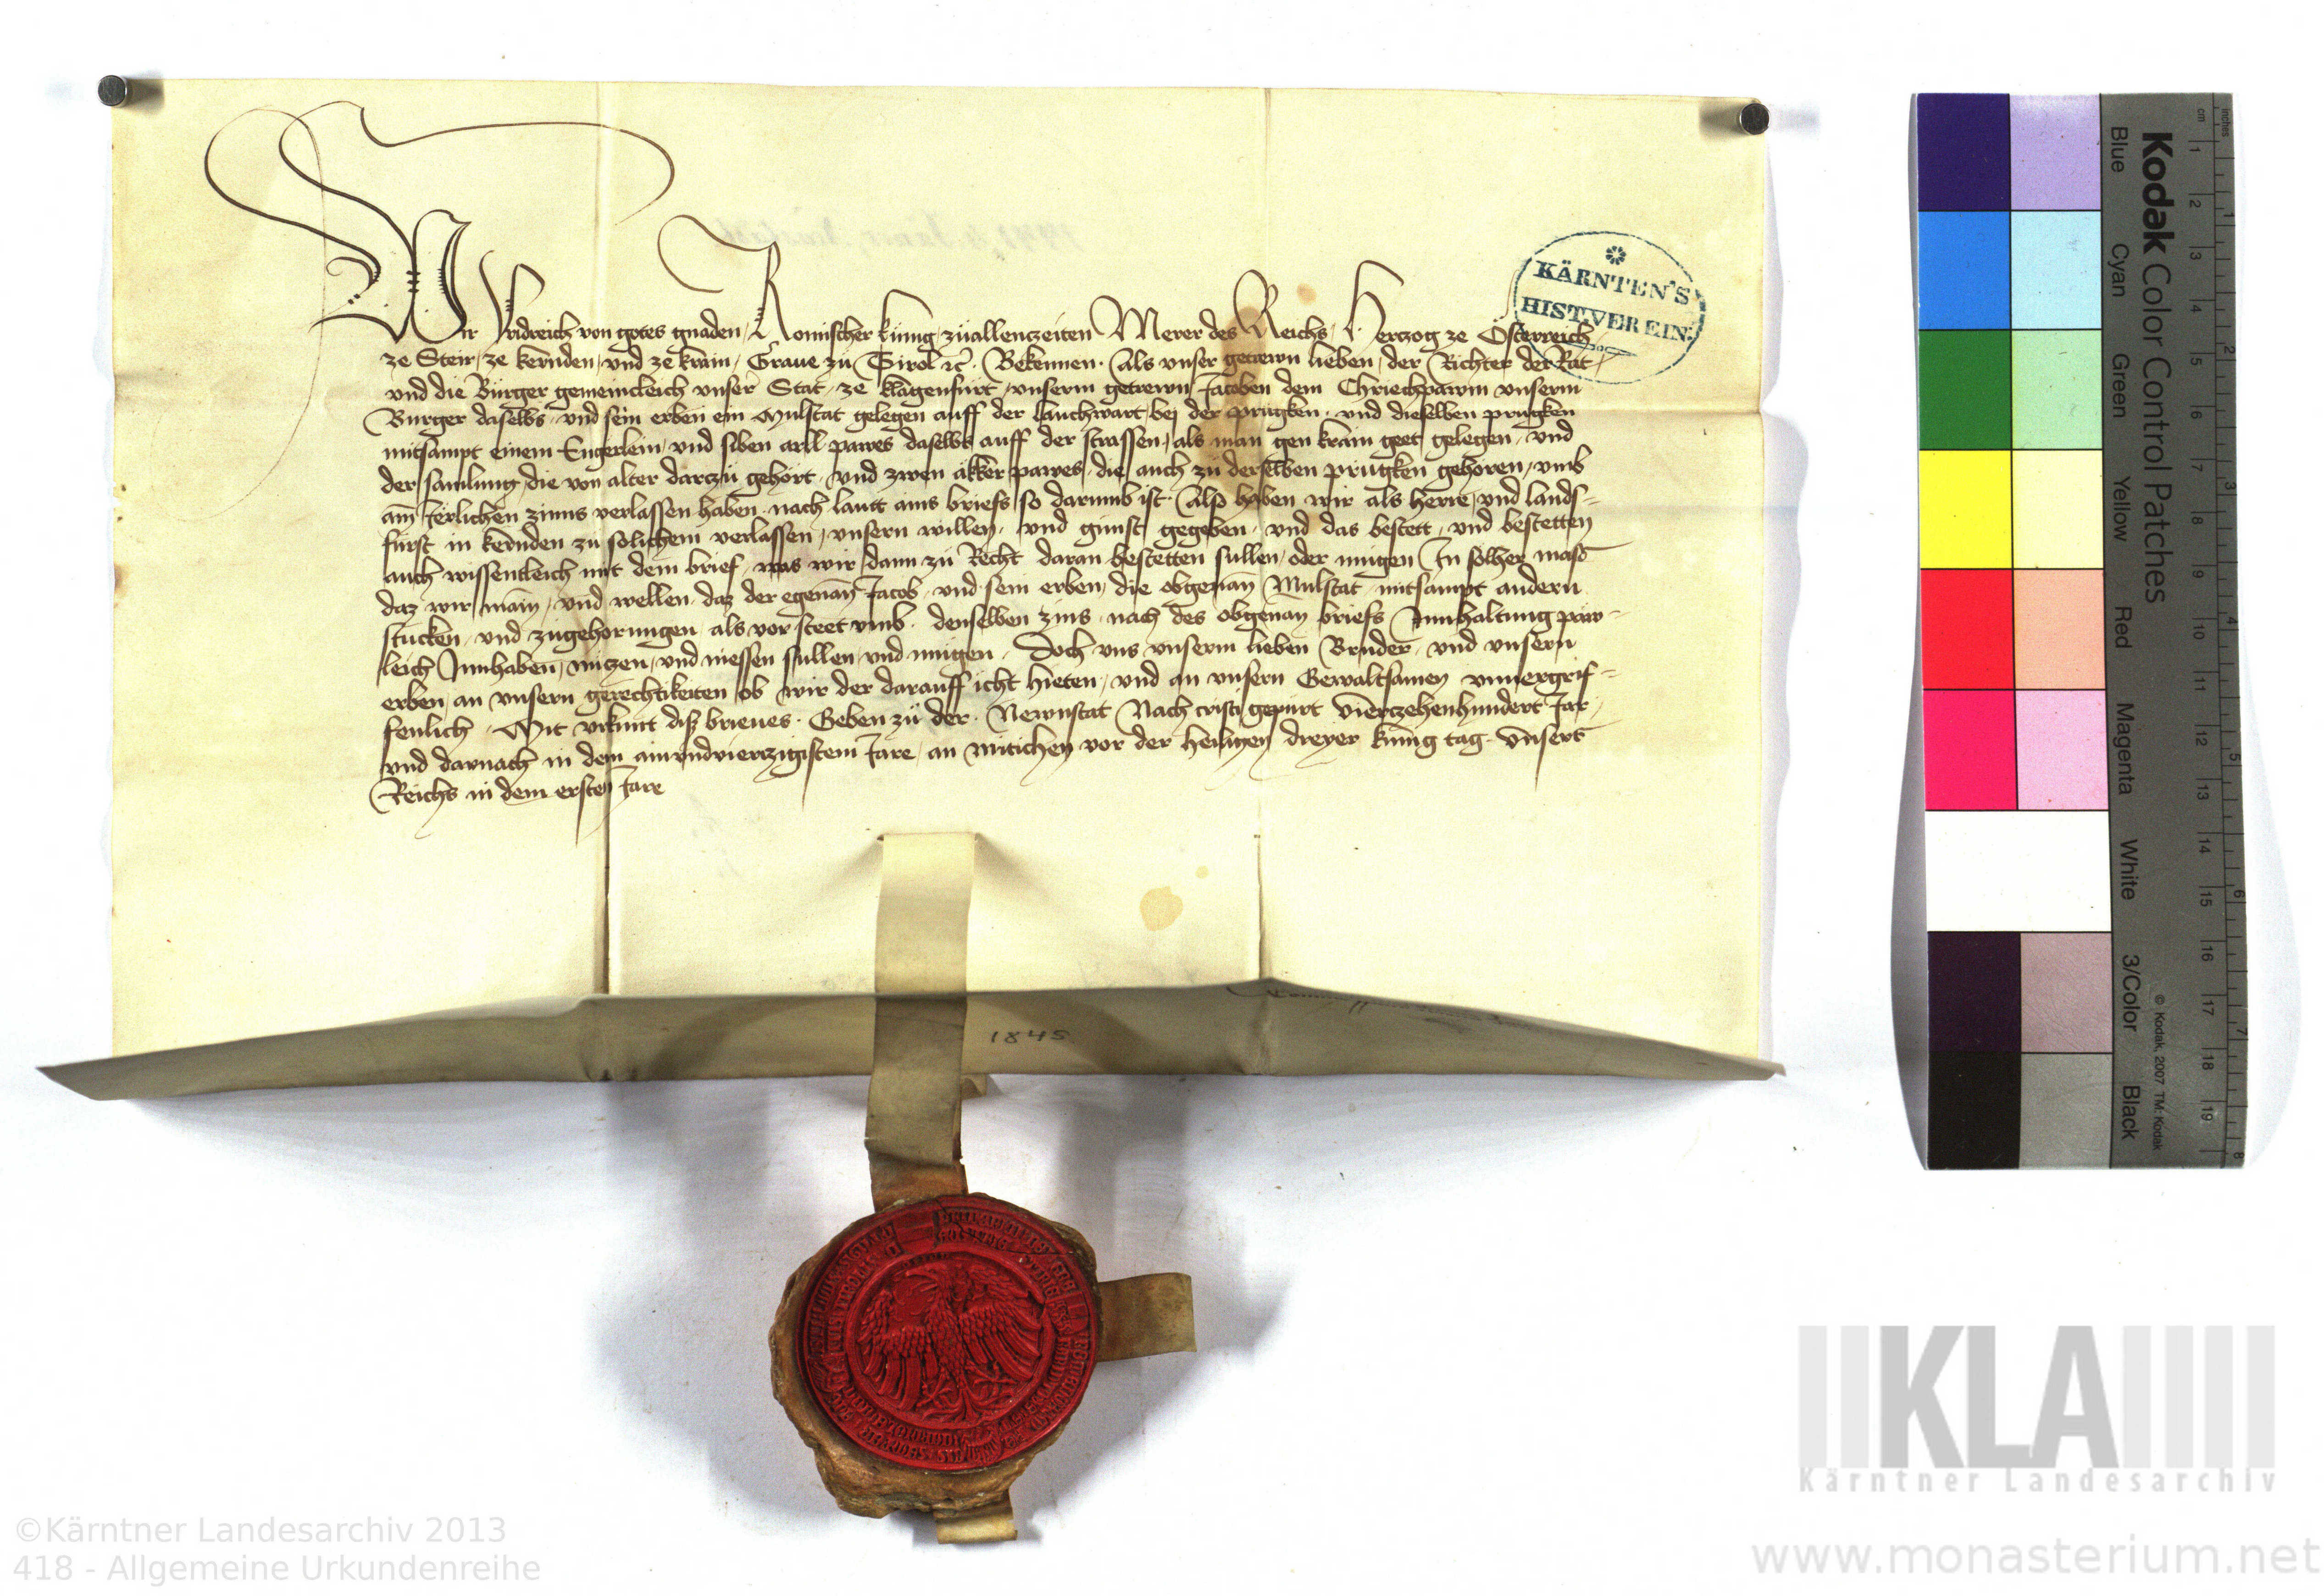 Wir Fridreich von gotes gnaden, Romischer kunig, zuallenczeiten Merer des Reichs, Herczog ze Österreich
ze Steir, ze kernden, und ze krain, Graue zu Tirol etc. Bekennen. Als unser getrewn lieben, der Richter der Rat,
und die Burger gemeincleich unser Stat, ze klagenfurt, unserm getrewn Jacoben dem Chriechpawm unserm
Burger daselbs, und sein erben ein Mulstat gelegen auff der lauchwart bej der prugken, und dieselben prugken
mitsampt einem Engerlein, und siben arll pawes daselbs auff der strassen, als man gen krain geet gelegen, und
der samlung, die von alter darczu gehört, und zwen akker pawes, die auch zu derselben prugken gehoren, umb
ain Jerlichen zinns verlassen haben, nach lautt ains briefs so darumb ist. Also haben wir als herre, und lands-
fürst in kernden zu solichem verlassen, unsern willen, und gunst gegeben, und das bestett, und bestetten
auch wissentleich mit dem brief, was wir dann zu Recht daran bestetten sullen, oder mugen In solher mass
daz wir main, und wellen, daz der egenan Jacob, und sein erben, die obgenan Mulstat, mitsampt andern
stucken, und zugehorungen, als vor steet umb denselben zins, nach des obgenan briefs Innhaltung paw-
leich Innhaben, nutzen, und niessen sullen, und mugen. Doch uns unserm lieben Bruder, und unsern
erben, an unsern gerechtikeiten, ob wir der darauff icht hieten, und an unsern Gewaltsamen unuergrif-
fenlich. Mit urkunt diss brieues. Geben zu der Newnstat Nach cristi gepurt vierczehenhundert Jar,
und darnach in dem ainundvierczigistem Jare, an mitichen vor der heiligen dreyer kunig tag. Unsers
Reichs in dem ersten Jare
KÄRNTEN'S
HIST. VEREIN.
1845
Kodak Color Control Patches
Blue Cyan Green Yellow Red Magenta White 3/Color Black
© Kodak, 2007 TM: Kodak
inches 1 2 3 4 5 6 7 8
cm 1 2 3 4 5 6 7 8 9 10 11 12 13 14 15 16 17 18 19
KLA
Kärntner Landesarchiv
©Kärntner Landesarchiv 2013
418 - Allgemeine Urkundenreihe
www.monasterium.net